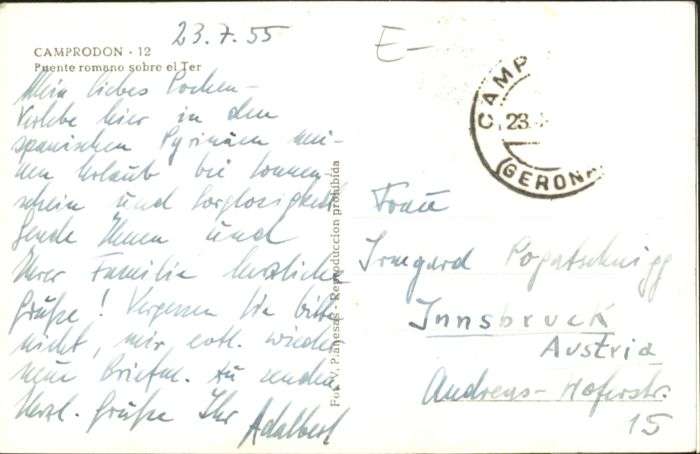 23.7.55
E-
CAMPRODON - 12
Puente romano sobre el Ter
Mein liebes
Verlebe hier in den
spanischen Pyrinäen mei-
nen Urlaub bei Sonnen-
schein und Sorglosigkeit.
Sende Ihnen und
Ihrer Familie herzliche
Grüße! Vergessen Sie bitte
nicht, mir evtl. wieder
neue Briefm. zu senden
Herzl. Grüße Ihr Adalbert
Fot. V. Planesas - Reproduccion prohibida
CAMP
23.
(GERONA
Frau
Irmgard Pogatschnigg
Innsbruck
Austria
Andreas-Hoferstr.
15